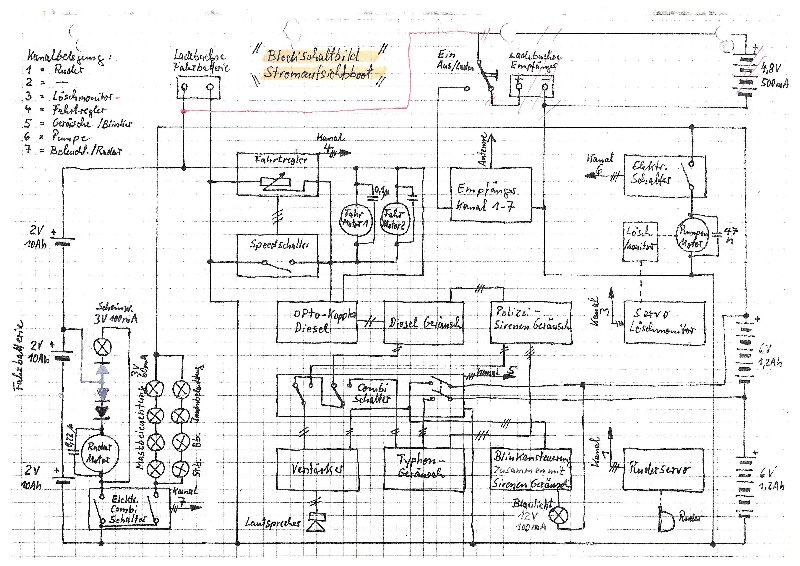 Kanalbelegung:
1 = Ruder
2 = —
3 = Löschmonitor
4 = Fahrtregler
5 = Geräusche/Blinker
6 = Pumpe
7 = Beleucht./Radar
Ladebuchse
Fahrbatterie
"Blockschaltbild"
"Stromaufsichtsboot"
Ein
Aus/Laden
Ladebuchse
Empfängs.
4,8V
500mA
Kanal
4
Fahrtregler
Speedschalter
Fahr
Motor 1
Fahr
Motor 2
Antenne
Empfängs.
Kanal 1-7
Kanal
Elektr.
Schalter
Lösch
Monitor
Pumpen
Motor
47
n
2V
10Ah
2V
10Ah
2V
10Ah
Fahrbatterie
Scheinw.
3V 100mA
0,22µ
Radar
Motor
3V
60mA
Mastbeleuchtung
Bb.
Stb.
Elektr.
Combi
Schalter
Kanal
7
Opto-Koppler
Diesel
Diesel Geräusch
Polizei-
Sirenen Geräusch
Kanal
3
Servo
Löschmonitor
Combi
Schalter
Kanal 5
Verstärker
Typhon-
Geräusch
Blinkansteuerung
Zusammen mit
Sirenen Geräusch
Lautsprecher
Blaulicht
12V
100mA
Kanal
1
Ruderservo
Ruder
6V
1,2Ah
6V
1,2Ah